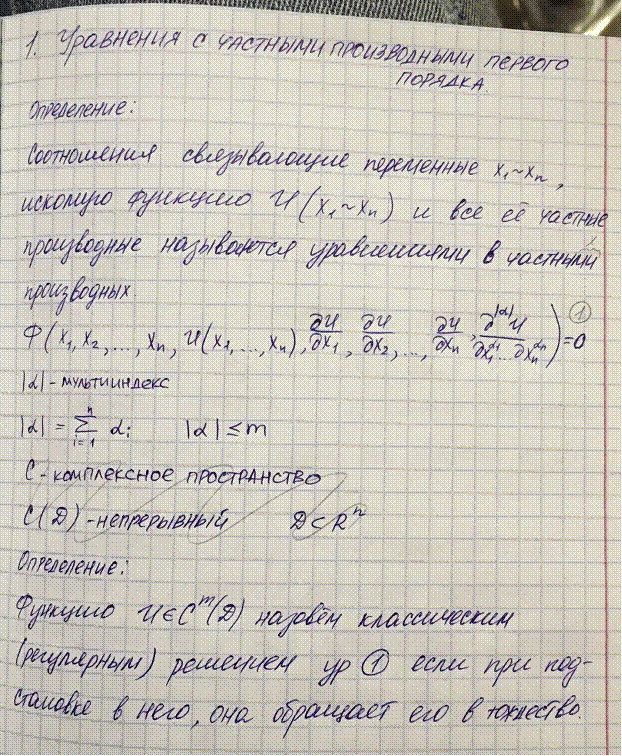 1. Уравнения с частными производными первого
порядка
Определение:
Соотношения связывающие переменные x₁~xₙ,
искомую функцию U(x₁~xₙ) и все её частные
производные называются уравнениями в частными
производных.
Ф(x₁, x₂, ..., xₙ, U(x₁, ..., xₙ), ∂U/∂x₁, ∂U/∂x₂, ..., ∂U/∂xₙ, ∂^|α|U/∂x₁^α₁...∂xₙ^αₙ) = 0 ①
|α| - мультииндекс
|α| = Σ_{i=1}^{n} αᵢ |α| ≤ m
C - комплексное пространство
C(D) - непрерывный D ⊂ Rⁿ
Определение:
Функцию U∈Cᵐ(D) назовём классическим
(регулярным) решением ур ① если при под-
становке в него, она обращает его в тождество.